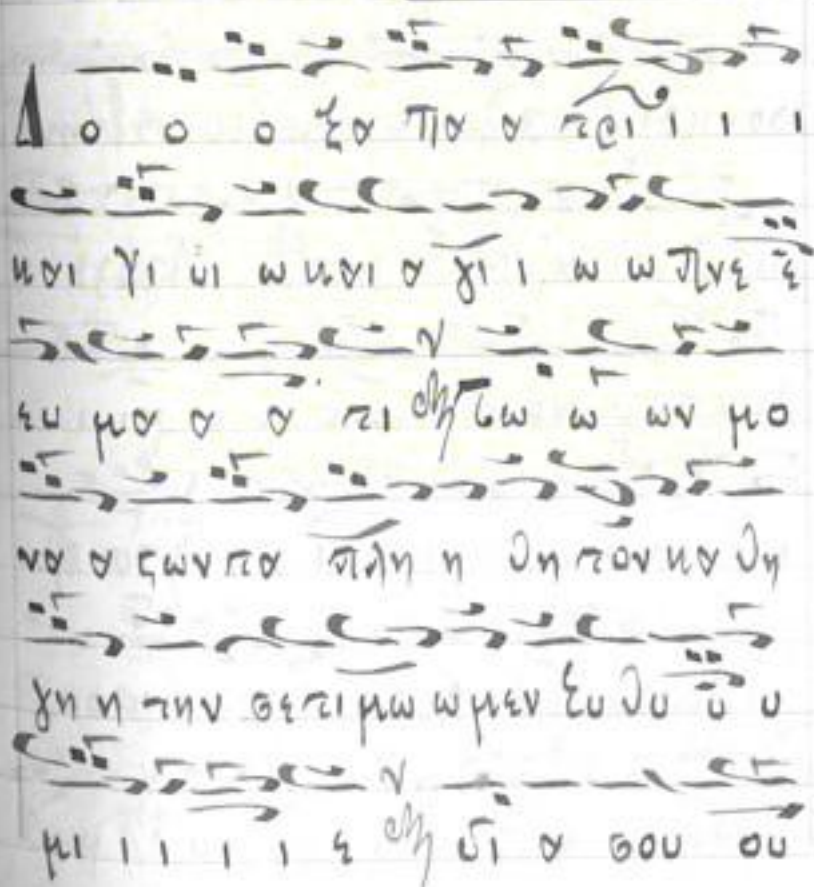 Δ ο ο ο ξα πα α τρι ι ι ι
και γι υι ω και α γι ι ω ω πνε ε
ευ μα α α τι των ω ων μο
να α ζων τα πλη η θη τον κα θη
γη η την σε τι μω ω μεν Ευ θυ υ υ
μι ι ι ι ι ε δι α σου ου